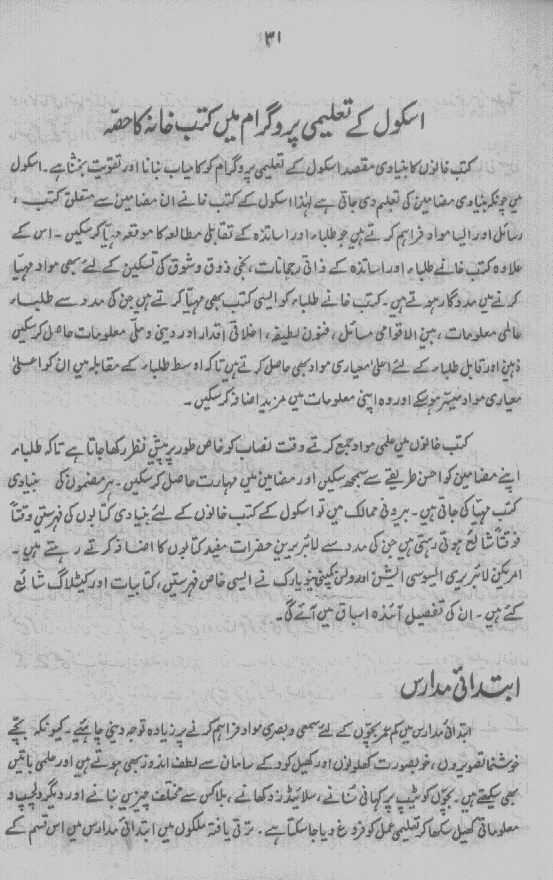 ۳۱
اسکول کے تعلیمی پروگرام میں کتب خانہ کا حصّہ
کتب خانوں کا بنیادی مقصد اسکول کے تعلیمی پروگرام کو کامیاب بنانا اور تقویت بخشنا ہے۔ اسکول
میں چونکہ بنیادی مضامین کی تعلیم دی جاتی ہے لہٰذا اسکول کے کتب خانے ان مضامین سے متعلق کتب ،
رسائل اور ایسا مواد فراہم کرتے ہیں جو طلباء اور اساتذہ کے تقابلی مطالعہ کا موقعہ مہیّا کر سکیں۔ اس کے
علاوہ کتب خانے طلباء اور اساتذہ کے ذاتی رجحانات، نجی ذوق و شوق کی تسکین کے لئے بھی مواد مہیّا
کرنے میں مددگار ہوتے ہیں۔ کتب خانے طلباء کو ایسی کتب بھی مہیّا کرتے ہیں جن کی مدد سے طلباء
عالمی معلومات، بین الاقوامی مسائل، فنون لطیفہ، اخلاقی اقدار اور دینی و ملّی معلومات حاصل کر سکیں
ذہین اور قابل طلباء کے لئے اعلیٰ معیاری مواد بھی حاصل کرتے ہیں تاکہ اوسط طلباء کے مقابلہ میں ان کو اعلیٰ
معیاری مواد میسّر ہو سکے اور وہ اپنی معلومات میں مزید اضافہ کر سکیں۔
کتب خانوں میں علمی مواد جمع کرتے وقت نصاب کو خاص طور پر پیشِ نظر رکھا جاتا ہے تاکہ طلباء
اپنے مضامین کو احسن طریقے سے سمجھ سکیں اور مضامین میں مہارت حاصل کر سکیں۔ ہر مضمون کی بنیادی
کتب مہیّا کی جاتی ہیں۔ بیرونی ممالک میں تو اسکول کے کتب خانوں کے لئے بنیادی کتابوں کی فہرستیں وقتاً
فوقتاً شائع ہوتی رہتی ہیں جن کی مدد سے لائبریرین حضرات مفید کتابوں کا اضافہ کرتے رہتے ہیں۔
امریکن لائبریری ایسوسی ایشن اور ولسن کمپنی نیویارک نے ایسی خاص فہرستیں، کتابیات اور کیٹلاگ شائع
کئے ہیں۔ ان کی تفصیل آئندہ اسباق میں آئے گی۔
ابتدائی مدارس
ابتدائی مدارس میں کم عمر بچّوں کے لئے سمعی و بصری مواد فراہم کرنے پر زیادہ توجہ دینی چاہئیے۔ کیونکہ بچّے
خوشنما تصویروں، خوبصورت کھلونوں اور کھیل کود کے سامان سے لطف اندوز بھی ہوتے ہیں اور علمی باتیں
بھی سیکھتے ہیں۔ بچّوں کو ٹیپ پر کہانی سُنانے، سلائیڈز دکھانے، بلاکس سے مختلف چیزیں بنانے اور دیگر دلچسپ و
معلوماتی کھیل سکھا کر تعلیمی عمل کو فروغ دیا جا سکتا ہے۔ ترقی یافتہ ملکوں میں ابتدائی مدارس میں اس قسم کے